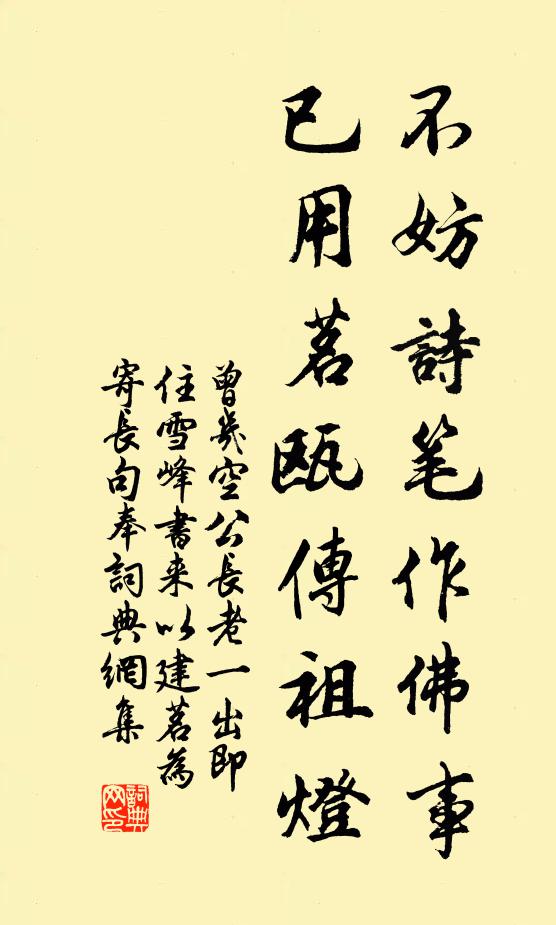 不妨詩笔作佛事
已用茗甌傳祖燈
曾幾空公長老一出即
住雪峰書来以建茗為
寄長句奉詞典網集
詞典
网印